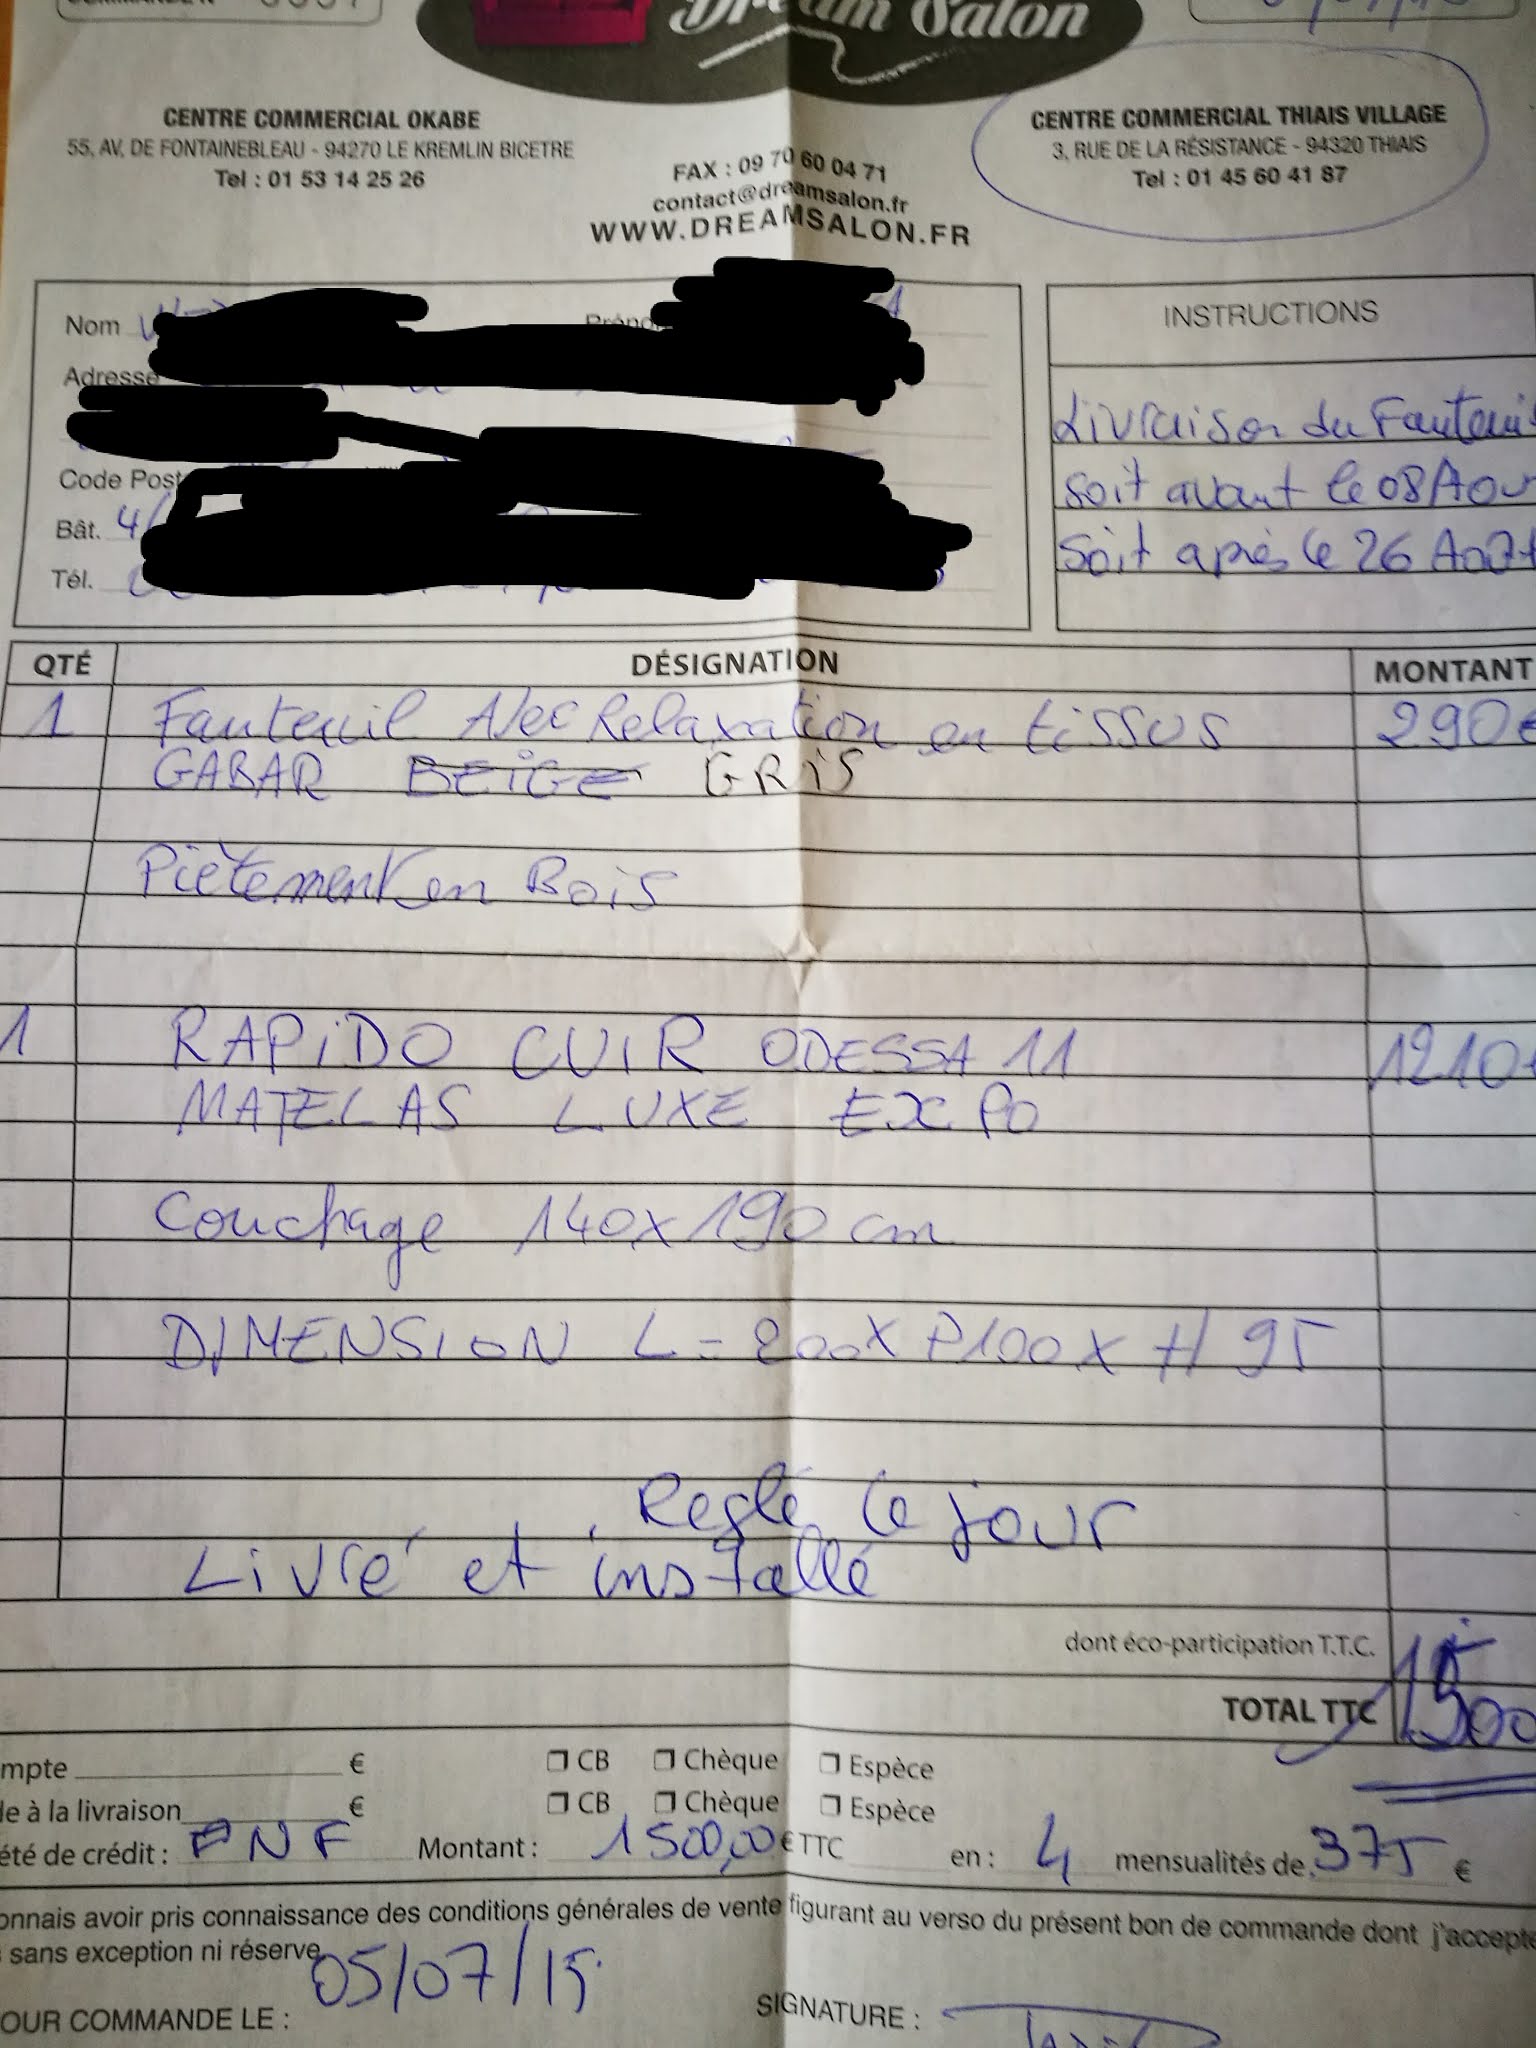 COMMANDE N°
Dream Salon
CENTRE COMMERCIAL OKABE
55, AV. DE FONTAINEBLEAU - 94270 LE KREMLIN BICETRE
Tel : 01 53 14 25 26
FAX : 09 70 60 04 71
contact@dreamsalon.fr
WWW.DREAMSALON.FR
CENTRE COMMERCIAL THIAIS VILLAGE
3, RUE DE LA RÉSISTANCE - 94320 THIAIS
Tel : 01 45 60 41 87
Nom
Adresse
Code Post
Bât. 4
Tél.
INSTRUCTIONS
Livraison du Fauteui
soit avant le 08 Aou
Soit après le 26 Août
QTÉ DÉSIGNATION MONTANT
1 Fauteuil Avec Relaxation en tissus 290€
GABAR BEIGE GRIS
Piètement en Bois
1 RAPIDO CUIR ODESSA 11 1210
MATELAS LUXE EXPO
Couchage 140x190 cm
DIMENSION L = 200 x P100 x H 95
Reglé ce jour
Livré et installé
dont éco-participation T.T.C.
TOTAL TTC 1500
mpte € CB Chèque Espèce
le à la livraison € CB Chèque Espèce
été de crédit : Montant : 1500,00 € TTC en : 4 mensualités de 375 €
onnais avoir pris connaissance des conditions générales de vente figurant au verso du présent bon de commande dont j'accepte
sans exception ni réserve
OUR COMMANDE LE : 05/07/15
SIGNATURE :